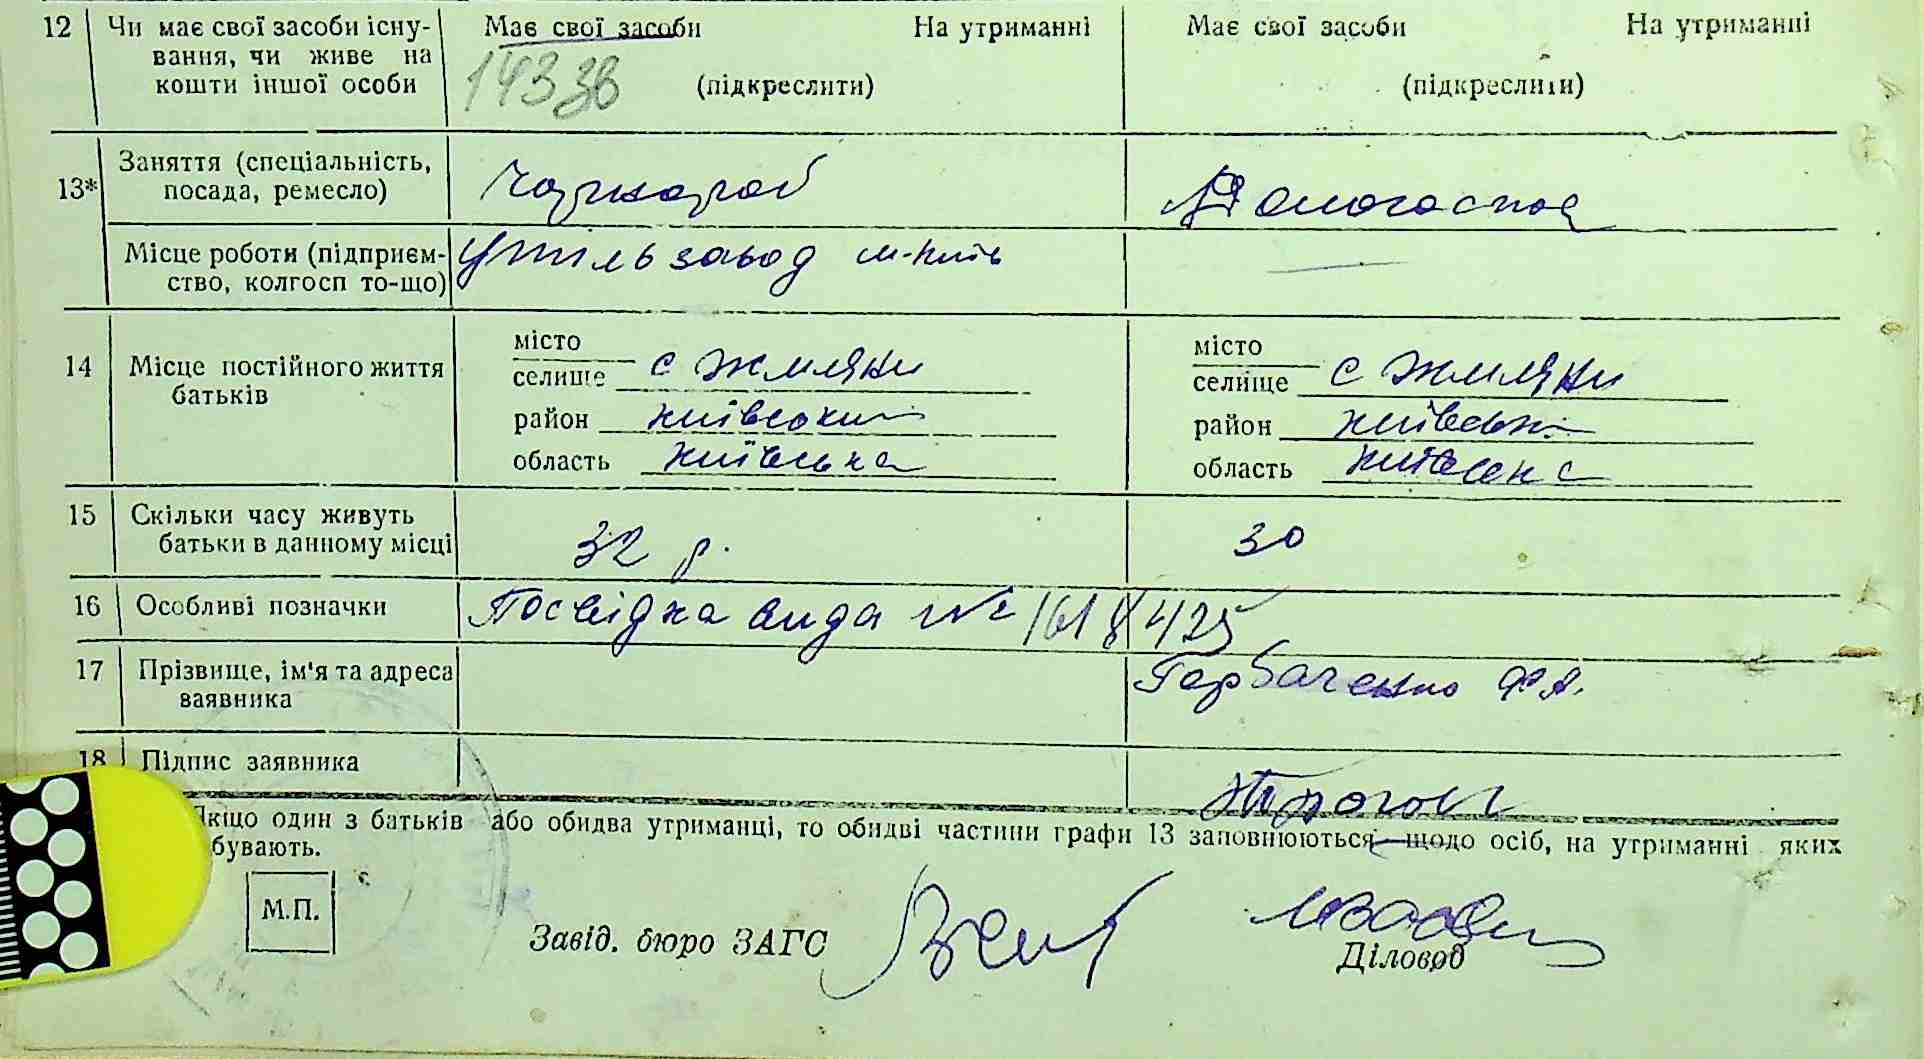 12 Чи має свої засоби існу- Має свої засоби На утриманні Має свої засоби На утриманні
вання, чи живе на
кошти іншої особи 14338 (підкреслити) (підкреслити)
13* Заняття (спеціальність, посада, ремесло) Чорнороб Домогоспод
Місце роботи (підприєм-
ство, колгосп то-що) Утільзавод м-Київ —
14 Місце постійного життя
батьків
місто місто
селище с Жмляни селище с Жмляни
район київський район київськ
область київська область київська
15 Скільки часу живуть
батьки в данному місці 32 р. 30
16 Особливі позначки Посвідка вида № 1618425
17 Прізвище, ім'я та адреса
заявника Горбаченко Ф.А.
18 Підпис заявника
Якщо один з батьків або обидва утриманці, то обидві частини графи 13 заповнюються щодо осіб, на утриманні яких
бувають.
М.П.
Завід. бюро ЗАГС
Діловод